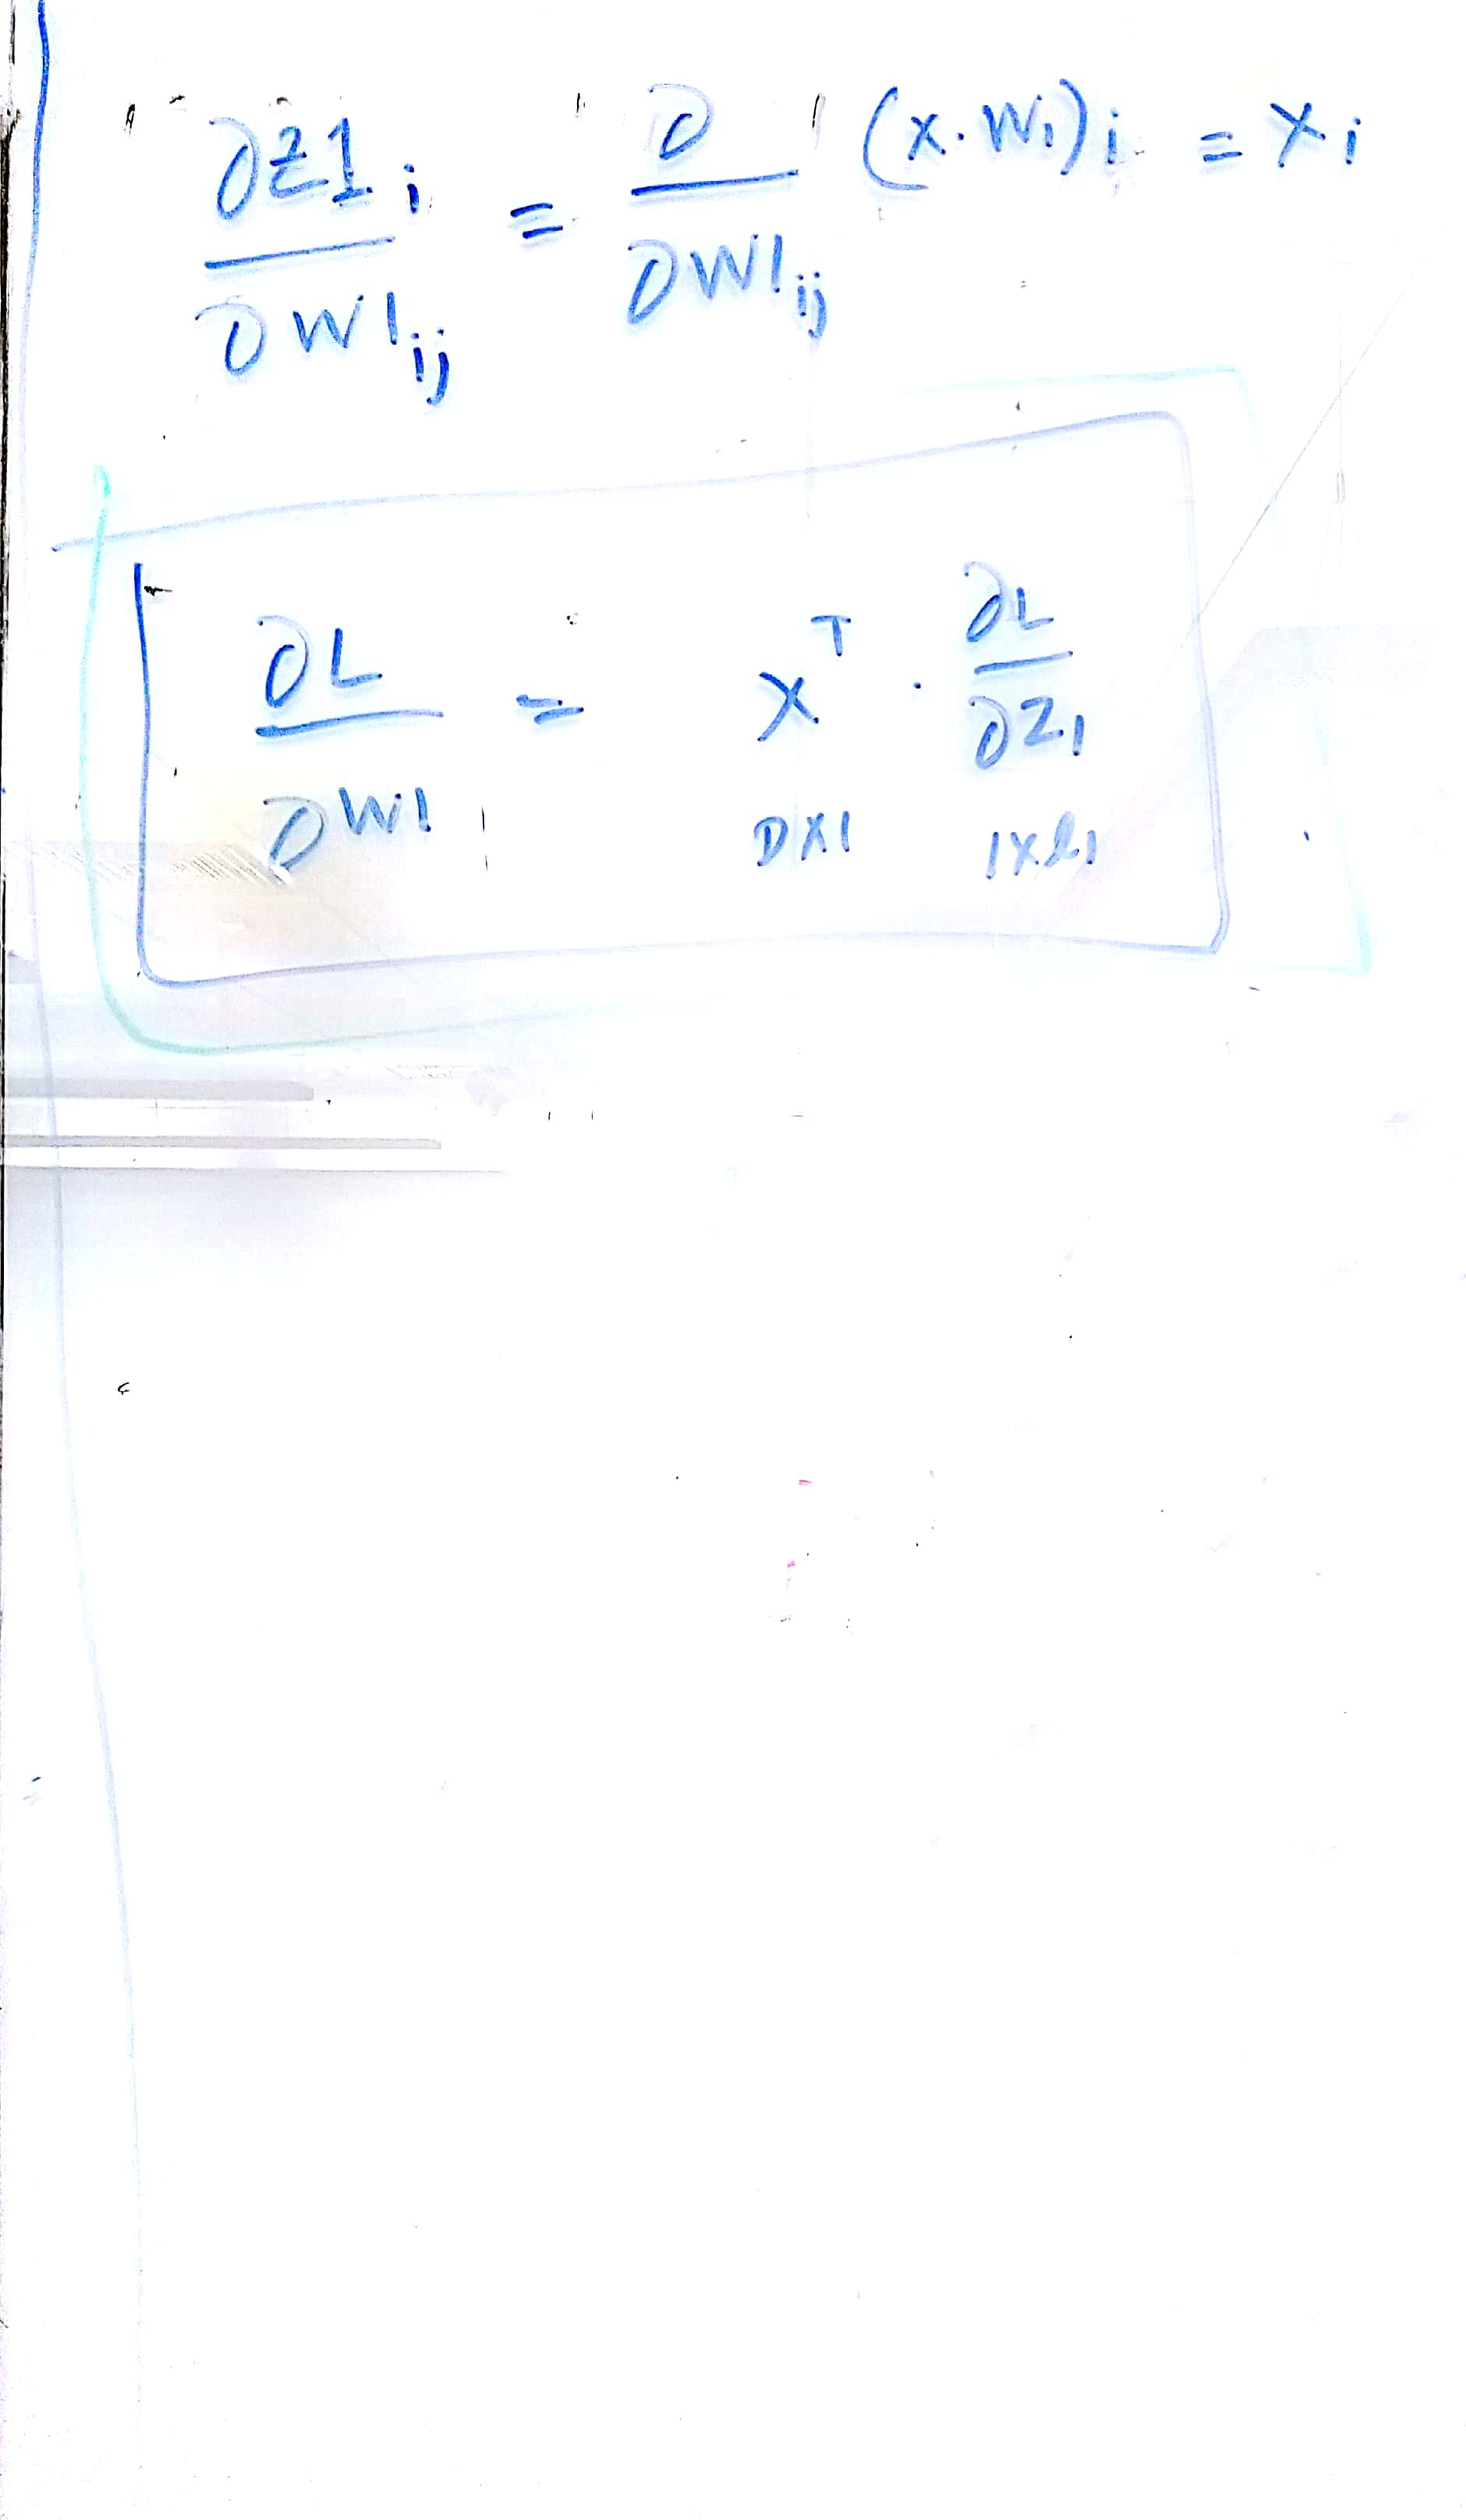 ∂z1i / ∂W1ij = ∂ / ∂W1ij (x.W1)i = xi
∂L / ∂W1 = x^T . ∂L / ∂z1
D×1 1×l1